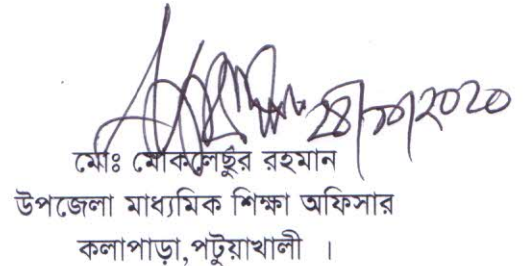 ২৪/১০/২০২০
মোঃ মোকলেছুর রহমান
উপজেলা মাধ্যমিক শিক্ষা অফিসার
কলাপাড়া,পটুয়াখালী ।